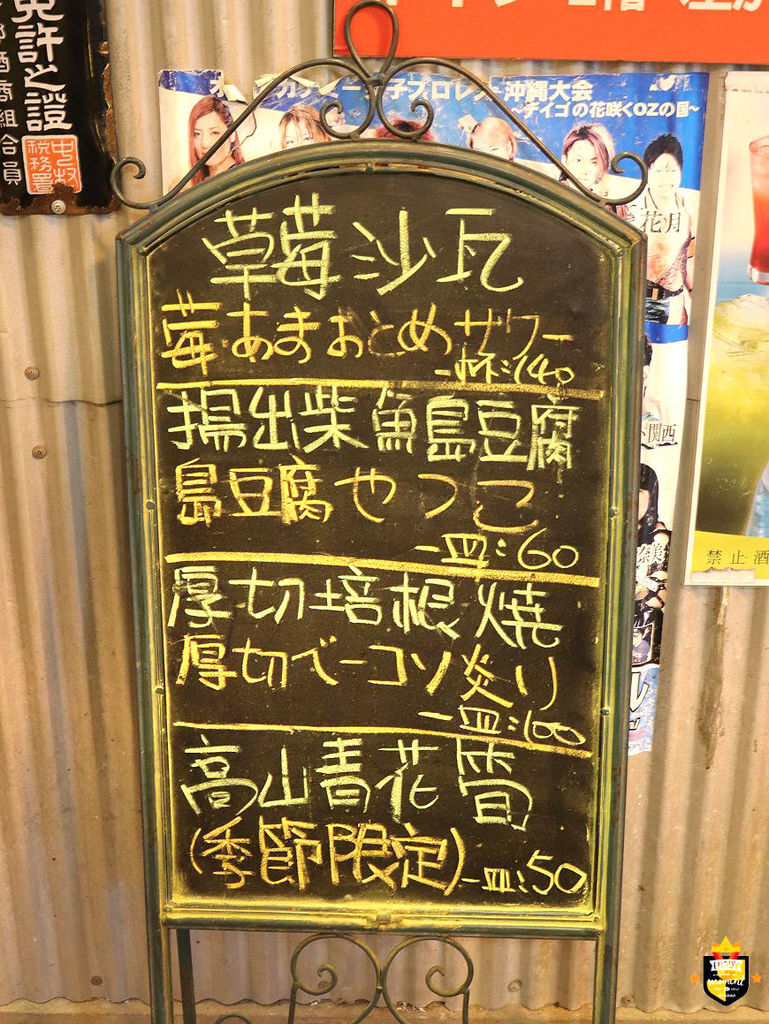 免許之證
酒商組合員
中村税務署
沖縄大会
~デイゴの花咲くOZの国~
花月
関西
禁止酒
草莓沙瓦
莓あまおとめサワー
一杯:140
揚出柴魚島豆腐
島豆腐やっこ
一皿:60
厚切培根燒
厚切ベーコン炙り
一皿:100
高山青花筍
(季節限定)一皿:50